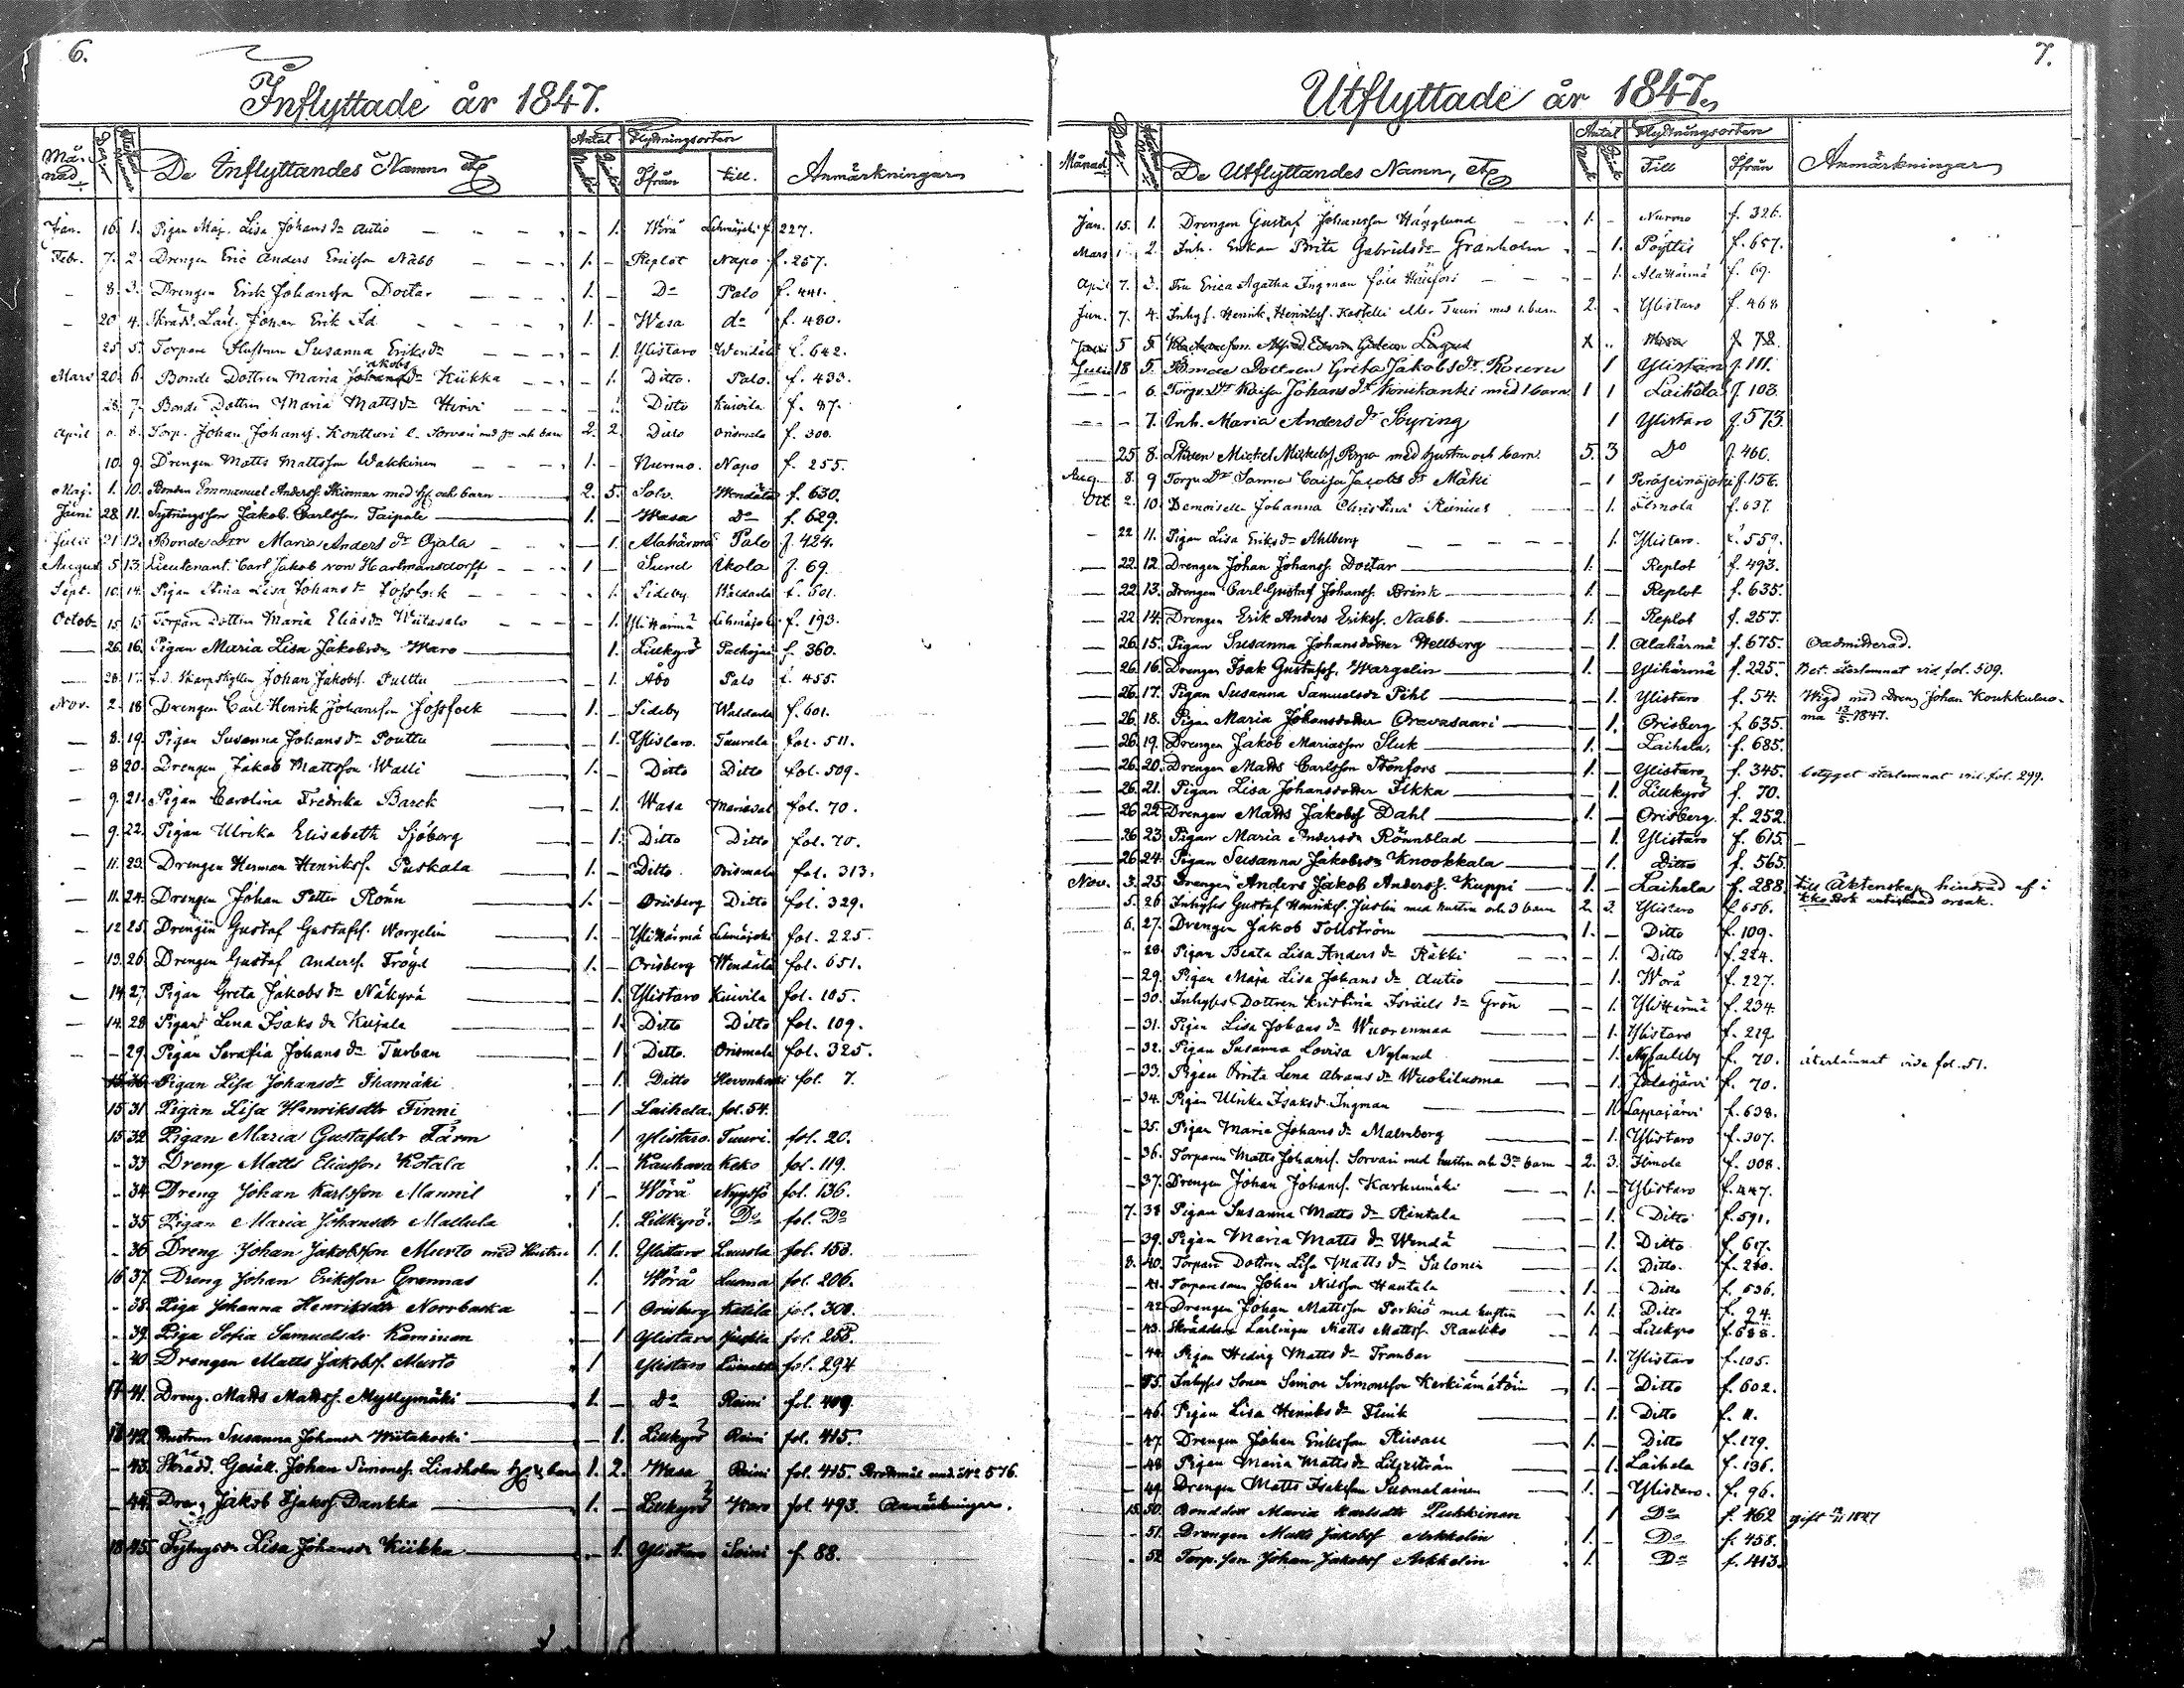 6.
Inflyttade år 1847.
Månad Dag Antal Flyttningsorten
De Inflyttandes Namn etc. Ifrån till. Anmärkningar
Jan. 16. 1. Pigan Maj. Lisa Johans dr Autio - 1. Wörå Lehmäjoki f. 227.
Febr. 7. 2. Drengen Eric Anders Ericsson Nabb 1. - Replot Napo f. 257.
- 8. 3. Drengen Erik Johansson Doctar 1. - Do Palo f. 441.
- 20. 4. Skrädd. Lärl. Johan Erik 1. - Wasa do f. 480.
25. 5. Torpare Hustrun Susanna Eriks dr - 1. Ylistaro Wendälä f. 642.
Mars 20. 6. Bonde Dottren Maria Jakobs dr Kiikka - 1. Ditto. Palo. f. 433.
28. 7. Bonde Dottren Maria Matts dr Hirvi - 1. Ditto Kuivila f. 87.
April 8. Torp. Johan Johanss. Konttari l. Sorvari med hu och barn 2. 2. Ditto Orismala f. 300.
10. 9. Drengen Matts Mattsson Wakkinen 1. - Nurmo. Napo f. 255.
Maj. 1. 10. Bonden Emmanuel Anderss. Skinnar med H. och barn 2. 5. Solv. Wendälä f. 630.
Juni 28. 11. Sytningsson Jakob Carlsson Taipale 1. - Wasa Do f. 629.
Julii 21. 12. Bonde Dtr Maria Anders dr Ojala - 1. Alahärmä Palo f. 424.
August 5. 13. Lieutenant Carl Jakob von Hartmansdorff 1 - Sund Ikola f. 69.
Sept. 10. 14. Pigan Stina Lisa Johans dr Jossfock - 1. Sideby Waldarla f. 601.
Octob. 15 15 Torpare Dottren Maria Elias dr Wiitasalo - 1. Ylihärmä Lehmäjoki f. 193.
- 26. 16. Pigan Maria Lisa Jakobsdr Waro 1. Lillkyro Palhojai f. 360.
- 28. 17. f.d. Skarpskytten Johan Jakobss. Pulttu - 1. Åbo Palo f. 455.
Nov. 2. 18 Drengen Carl Henrik Johansson Jossfock 1. - Sideby Waldarla f. 601.
- 8. 19. Pigan Susanna Johans dr Pouttu - 1. Ylistaro. Tuurala fol. 511.
- 8 20. Drengen Jakob Mattsson Walli 1. - Ditto Ditto fol. 509.
- 9. 21. Pigan Carolina Fredrika Barck - 1. Wasa Mariedal fol. 70.
- 9. 22. Pigan Ulrika Elisabeth Sjöberg - 1. Ditto Ditto fol. 70.
- 11. 23. Drengen Herman Henrikss. Puskala 1. - Ditto. Orismala fol. 313.
- 11. 24. Drengen Johan Petter Rönn 1. - Orisberg Ditto fol. 329.
- 12 25. Drengen Gustaf Gustafss. Wargelin 1. - Ylihärmä Lehmäjoki fol. 225.
- 13. 26. Drengen Gustaf Anderss. Tröyd 1. - Orisberg Wendälä fol. 651.
- 14. 27. Pigan Greta Jakobs dr Näkyvä - 1. Ylistaro Kuivila fol. 105.
- 14. 28 Pigan Lena Isaks dr Kujala - 1. Ditto Ditto fol. 109.
- - 29. Pigan Serafia Johans dr Turban - 1 Ditto. Orismala fol. 325.
15 30. Pigan Lisa Johansdr Ihamäki - 1 Ditto Hevonkoski fol. 7.
15 31. Pigan Lisa Henriksdtr Finni - 1 Laihela. fol. 54.
15 32 Pigan Maria Gustafsdr Färm 1 Ylistaro. Tuuri. fol. 20.
- 33 Dreng Matts Eliasson Kotala 1. - Kauhava Keko fol. 119.
- 34. Dreng Johan Karlsson Mannil 1 - Wörå Nyystö fol. 136.
- 35 Pigan Maria Johansdr Mathula 1. Lillkyro. Do fol. Do
- 36 Dreng Johan Jakobsson Murto med Hustru 1. 1. Ylistaro Laurola fol. 153.
16 37. Dreng Johan Eriksson Grannas 1. Wörå Luoma fol. 206.
- 38. Piga Johanna Henriksdtr Norrbacka - 1 Orisberg Katila fol. 300.
- 39. Piga Sofia Samuelsdr Kaminen - 1 Ylistaro fol. 255.
- 40 Drengen Matts Jakobss. Murto 1 Ylistaro fol. 294
17. 41. Dreng. Matts Mattss. Myllymäki 1. - do Reini fol. 409.
18 42. Hustrun Susanna Johansdr Wiitakoski - 1. Lillkyro Reini fol. 415.
- 43. Skrädd. Gesäll. Johan Simonss. Lindholm H. & barn 1. 2. Wasa Reini fol. 415. und. No 576.
- 44. Dreng Jakob Dankka 1. - Lillkyro Waro fol. 493. Anmärkningar.
18 45. Sytngsdr Lisa Johansdr Kiikka - 1. Ylistaro Soini f. 88.
7.
Utflyttade år 1847.
Månad Dag Antal Flyttningsorten
De Utflyttandes Namn, etc. Till Ifrån Anmärkningar
Jan. 15. 1. Drengen Gustaf Johansson Hägglund 1. - Nurmo f. 326.
Mars 1 2. Inh. Enkan Brita Gabriels dr Granholm - 1. Pöyttis f. 657.
April 7. 3. Fru Erica Agatha Ingman föda - 1. Alahärmä f. 69.
Jun. 7. 4. Inhys. Henrik Henrikss. Kastelli eller Tuuri med 1. barn 2. - Ylistaro f. 468
5 5. Alfred Edvin Gideon Wasa f. 78.
Julii 18 5. Bonde Dottren Greta Jakobs dr Roveru 1 Ylistaro f. 111.
- - 6. Torp. Dtr Kaisa Johans dr Konikanki med 1 barn 1 1 Laihela f. 103.
- - 7. Inh. Maria Anders dr Söyring 1 Ylistaro f. 573.
25 8. Mickel Mickelss. med hustru och barn 5. 3 Do f. 460.
Aug. 8. 9 Torp. Dr Sanna Caisa Jacobs dr Mäki - 1 Peräseinäjoki f. 156.
Oct. 2. 10. Demoiselle Johanna Christina Reinius 1. Ilmola f. 637.
- 22 11. Pigan Lisa Eriks dr Ahlberg 1. Ylistaro. f. 559.
- 22. 12. Drengen Johan Johanss. Doctar 1. - Replot f. 493.
- 22. 13. Drengen Carl Gustaf Johanss. Brink 1. - Replot f. 635.
- 22 14. Drengen Erik Anders Erikss. Nabb. 1. - Replot f. 257.
- 26 15. Pigan Susanna Johansdotter Wellberg - 1. Alahärmä f. 675. Oadmitterad.
- 26. 16. Drengen Isak Gustafss. Wargelin 1. - Ylihärmä f. 225. Bet. återlemnat vid fol. 509.
- 26. 17. Pigan Susanna Samuelsdr Pihl - 1. Ylistaro f. 54. Wigd med Dreng Johan Koukkuluo-
- 26. 18. Pigan Maria Johansdotter Oravasaari - 1. Orisberg f. 635. ma 13/5 1847.
- 26 19. Drengen Jakob Mariasson Stuk 1. - Laihela. f. 685.
- 26. 20. Drengen Matts Carlsson Stenfors 1. - Ylistaro f. 345. betyget återlemnat vid fol. 299.
- 26. 21. Pigan Lisa Johansdotter Ilkka - 1. Lillkyro f. 70.
- 26 22 Drengen Matts Jakobss. Dahl 1. - Orisberg. f. 252.
- 26 23. Pigan Maria Andersdr Rönnblad - 1. Ylistaro f. 615.
- 26 24. Pigan Susanna Jakobsdr Knookkala - 1. Ditto f. 565
Nov. 3. 25. Drengen Anders Jakob Anderss. Kuppi 1. - Laihela f. 288 till Äktenskap hindrad af i
5. 26 Inhyses Gustaf Henrikss. Justin med hustru och 3 barn 2. 3. Ylistaro f. 656. antecknad orsak.
6. 27. Drengen Jakob Tollström 1. - Ditto f. 109.
- 28. Pigan Beata Lisa Anders dr Räkki - 1. Ditto f. 224.
- 29. Pigan Maja Lisa Johans dr Autio - 1. Wörå f. 227.
- 30. Inhyses Dottren Kristina Israels dr Grön - 1. Ylihärmä f. 234.
- 31. Pigan Lisa Johans dr Wuorenmaa - 1. Ylistaro f. 219.
- 32. Pigan Susanna Lovisa Nylund - 1. Nykarleby f. 70. återlämnat vide fol. 51.
- 33. Pigan Brita Lena Abrams dr Wuohiluoma - 1. Jalasjärvi f. 70.
- 34. Pigan Ulrika Isaks dr Ingman - 1. Lappajärvi f. 638.
- 35. Pigan Maria Johans dr Malmberg - 1. Ylistaro f. 307.
- 36. Torparen Matts Johanss. Sorvari med hustru och 3ne barn 2. 3. Ilmola f. 308.
- 37. Drengen Johan Johanss. Karhumäki 1. - Ylistaro f. 447.
7. 38 Pigan Susanna Matts dr Rintala - 1. Ditto f. 591.
- 39. Pigan Maria Matts dr Wendä - 1. Ditto f. 617.
8. 40. Torpare Dottren Lisa Matts dr Salonen - 1. Ditto. f. 210.
- 41. Torparesonen Johan Nilsson Hautala 1. - Ditto f. 636.
- 42 Drengen Johan Mattsson Porkiö med hustru 1. 1. Ditto f. 94.
- 43. Skräddare Lärlingen Matts Mattss. Rautiko 1. - Lillkyro f. 688.
- 44. Pigan Hedvig Matts dr Trombar - 1. Ylistaro f. 105.
- 45. Inhyses Sonen Simon Simonsson Kerkiämätöin 1. - Ditto f. 602.
- 46. Pigan Lisa Henriks dr Flink - 1. Ditto f. 11.
- 47 Drengen Johan Eriksson 1. - Ditto f. 179.
- 48 Pigan Maria Matts dr Liljeström - 1. Laihela f. 136.
- 49 Drengen Matts Isaksson Suomalainen 1. - Ylistaro. f. 96.
15. 50. Bonddotr Maria Karlsdtr Pukkinen 1 Do f. 462 gift 1847
- 51. Drengen Matts Jakobss. Arkkelin 1. - Do f. 458.
- 52 Torp. son Johan Jakobss. Arkkelin 1 Do f. 413.